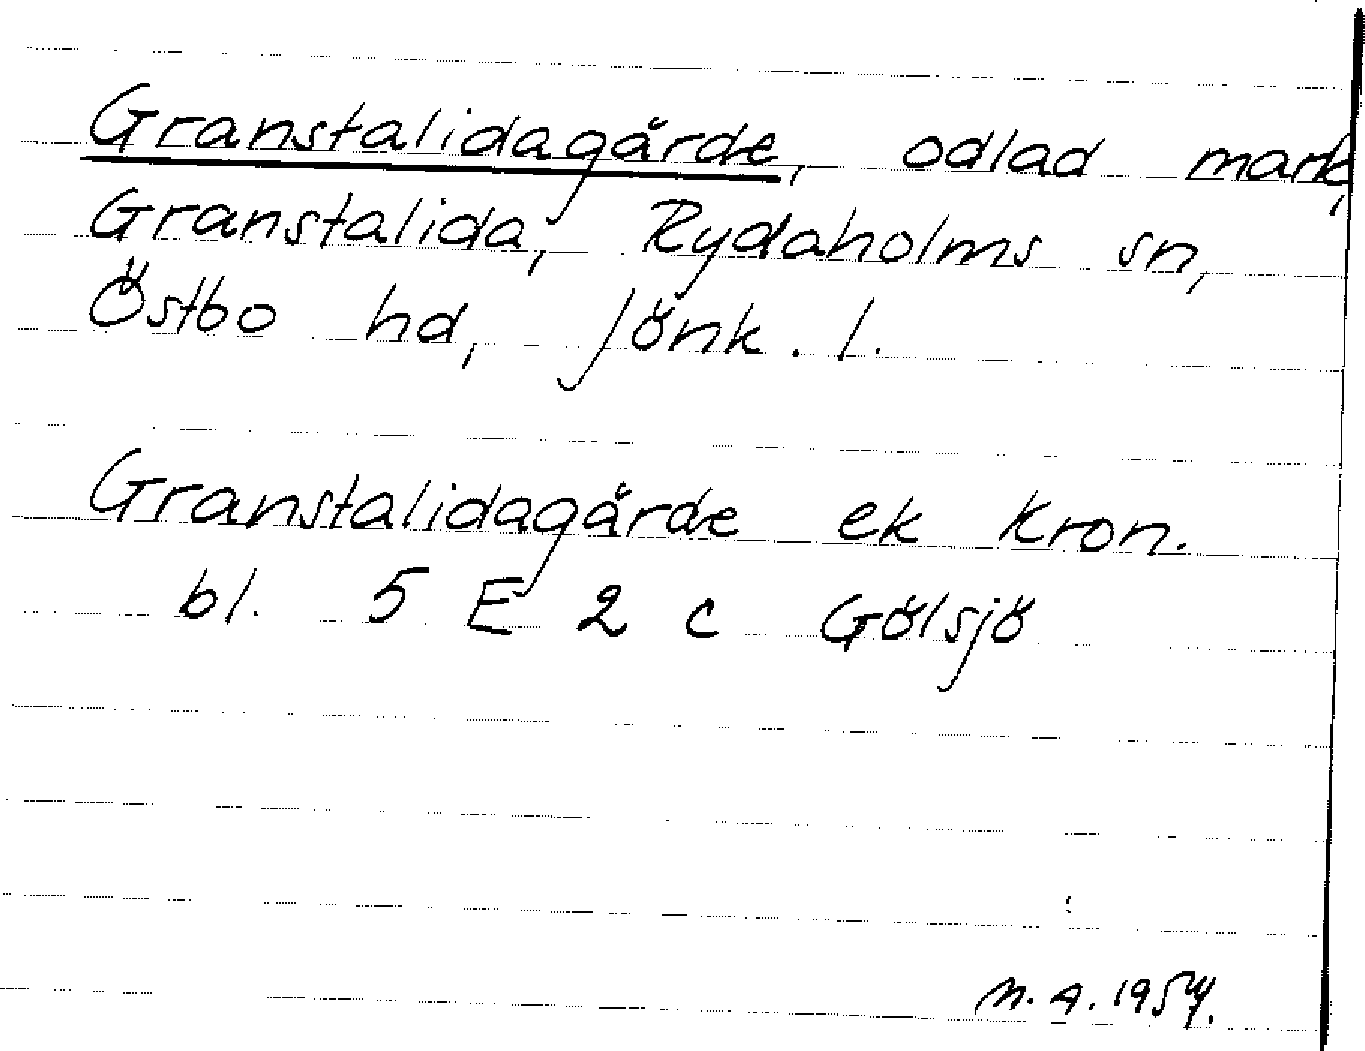 Granstalidagårde, odlad mark,
Granstalida, Rydaholms sn,
Östbo hd, Jönk. l.
Granstalidagårde ek kron.
bl. 5 E 2 c Gölsjö
M. A. 1954.